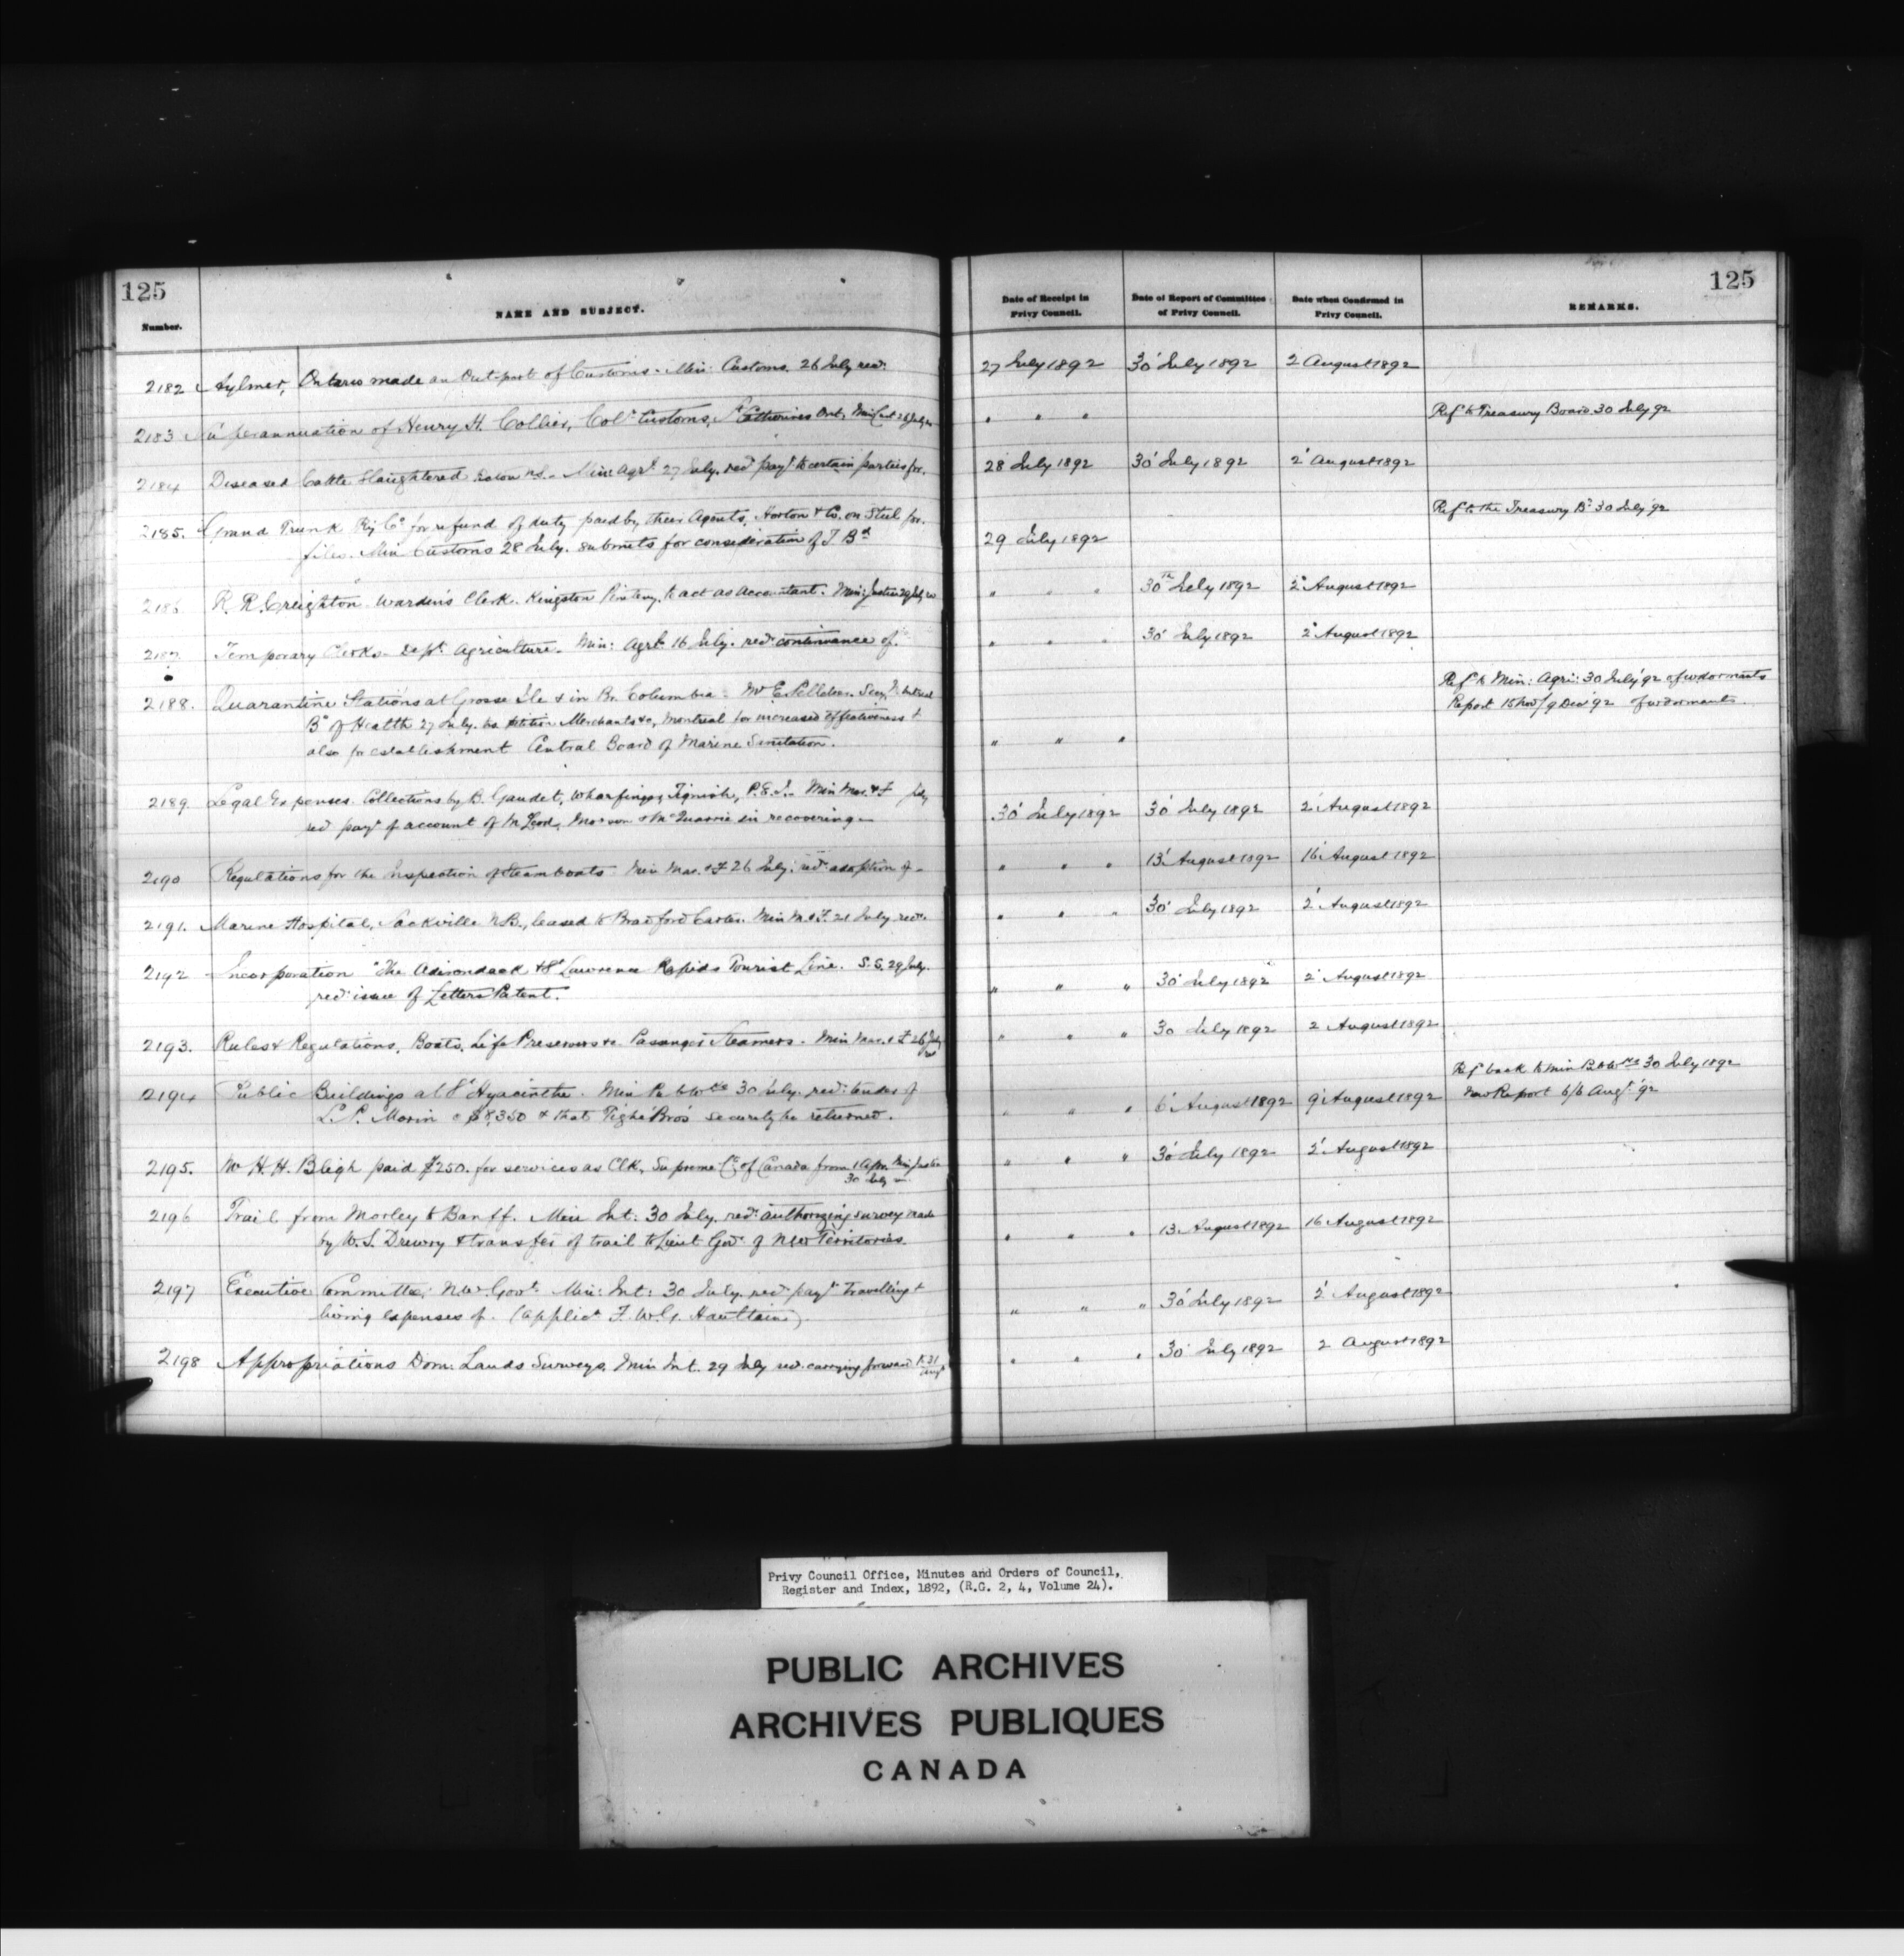 125
Number.
NAME AND SUBJECT.
Date of Receipt in Privy Council.
Date of Report of Committee of Privy Council.
Date when Confirmed in Privy Council.
REMARKS.
125
2182 Aylmer, Ontario made an Out-port of Customs. Min: Customs. 26 July recd. 27 July 1892 30 July 1892 2 August 1892
2183 Superannuation of Henry H. Collier, Colr Customs, St Catherines Ont, Min Cust 26 July " " " Ref to Treasury Board 30 July 92
2184 Diseased Cattle Slaughtered N.S. - Min: Agrl 27 July. recd payt to certain parties for. 28 July 1892 30 July 1892 2 August 1892
2185. Grand Trunk Ry Co for refund of duty paid by their Agents, Horton & Co. on Steel for. Ref to the Treasury Bd 30 July 92
files. Min Customs 28 July. submits for consideration of T. Bd 29 July 1892
2186 R. R. Creighton Warden's Clerk. Kingston Penitery. to act as Accountant. Min: Justice 29 July " " " 30th July 1892 2 August 1892
2187 Temporary Clerks - Dept Agriculture - Min: Agrl 16 July. recd continuance of. " " " 30 July 1892 2 August 1892
2188. Quarantine Stations at Grosse Ile & in Br. Columbia. Mr E. Pelletier. Secy Ref to Min: Agri: 30 July 92 of wdorments
Bd of Health 27 July. petition Merchants &c, Montreal for increased effectiveness & Report 15 Nov/9 Dec 92
also for establishment Central Board of Marine Sanitation. " " "
2189. Legal Expenses Collections by B. Gaudet, Wharfinger, Tignish, P.E.I. Min Mar. & F July
recd payt of account of McLeod, Morson & McQuarrie in recovering - 30 July 1892 30 July 1892 2 August 1892
2190 Regulations for the Inspection of Steamboats Min Mar. & F 26 July: recd adoption of - " " " 13 August 1892 16 August 1892
2191. Marine Hospital, Sackville N.B., leased to Bradford Carter. Min M. & F. 21 July recd. " " " 30 July 1892 2 August 1892
2192 Incorporation "The Adirondack & St Lawrence Rapids Tourist Line. S.S. 29 July.
recd issue of Letters Patent. " " " 30 July 1892 2 August 1892
2193. Rules & Regulations, Boats, Life Preservers &c Passenger Steamers. Min Mar. & F 26 July " " " 30 July 1892 2 August 1892
2194 Public Buildings at St Hyacinthe. Min Pub Wks 30 July. recd: tender of Ref back to Min Pub Wks 30 July 1892
L. P. Morin @ $8,350 & that Tighe Bros security be returned. " " " 6 August 1892 9 August 1892 New Report 6/6 Augt 92
2195. Mr H. H. Bligh paid $250. for services as Clk, Supreme Ct of Canada from 1 Apr. Min Justice
30 July " " " 30 July 1892 2 August 1892
2196 Trail from Morley to Banff. Min Int: 30 July. recd authorizing survey made
by W. S. Drewry & transfer of trail to Lieut Govr of NW Territories. " " " 13 August 1892 16 August 1892
2197 Executive Committee, N.W. Govt. Min: Int: 30 July. recd payt travelling &
living expenses of. (applicn F. W. G. Haultain). " " " 30 July 1892 2 August 1892
2198 Appropriations Dom: Lands Surveys. Min Int. 29 July recd carrying forward to 31 Augt " " " 30 July 1892 2 August 1892
Privy Council Office, Minutes and Orders of Council,
Register and Index, 1892, (R.G. 2, 4, Volume 24).
PUBLIC ARCHIVES
ARCHIVES PUBLIQUES
CANADA